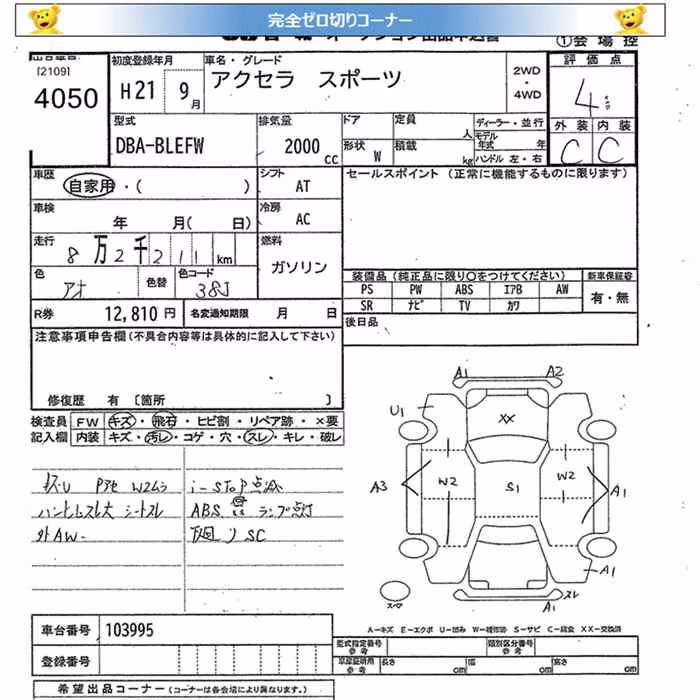 完全ゼロ切りコーナー
①会場控
[2109]
4050
初度登録年月
H21 9月
車名・グレード
アクセラ スポーツ
2WD
・
4WD
評価点
4
外装 内装
C C
型式
DBA-BLEFW
排気量
2000 CC
ドア
形状 W
定員 人
積載 kg
ディーラー・並行
モデル年式 年
ハンドル 左・右
車歴
自家用・( )
シフト
AT
セールスポイント (正常に機能するものに限ります)
車検
年 月( 日)
冷房
AC
走行
8万2千211km
燃料
ガソリン
色
アオ
色替
色コード
38J
装備品(純正品に限り○をつけてください)
新車保証書
PS PW ABS エアB AW
SR ナビ TV カワ
有・無
R券 12,810円
名変通知期限 月 日
後日品
注意事項申告欄(不具合内容等は具体的に記入して下さい)
修復歴 有 [箇所 ]
検査員 FW キズ・飛石・ヒビ割・リペア跡・×要
記入欄 内装 キズ・汚レ・コゲ・穴・スレ・キレ・破レ
i-STOP点滅
ハンドルスレ大 シートスレ
ABS ランプ点灯
外AW-
下廻りSC
A1 A2
U1
XX
A3 W2 S1 W2 A1
A1
スレ
A1
スペア
A-キズ E-エクボ U-凹み W-補修跡 S-サビ C-腐食 XX-交換済
車台番号 103995
登録番号
型式指定番号 参考
類別区分番号 参考
車庫証明用 参考
長さ cm
幅 cm
高さ cm
希望出品コーナー (コーナーは各会場により異なります。)